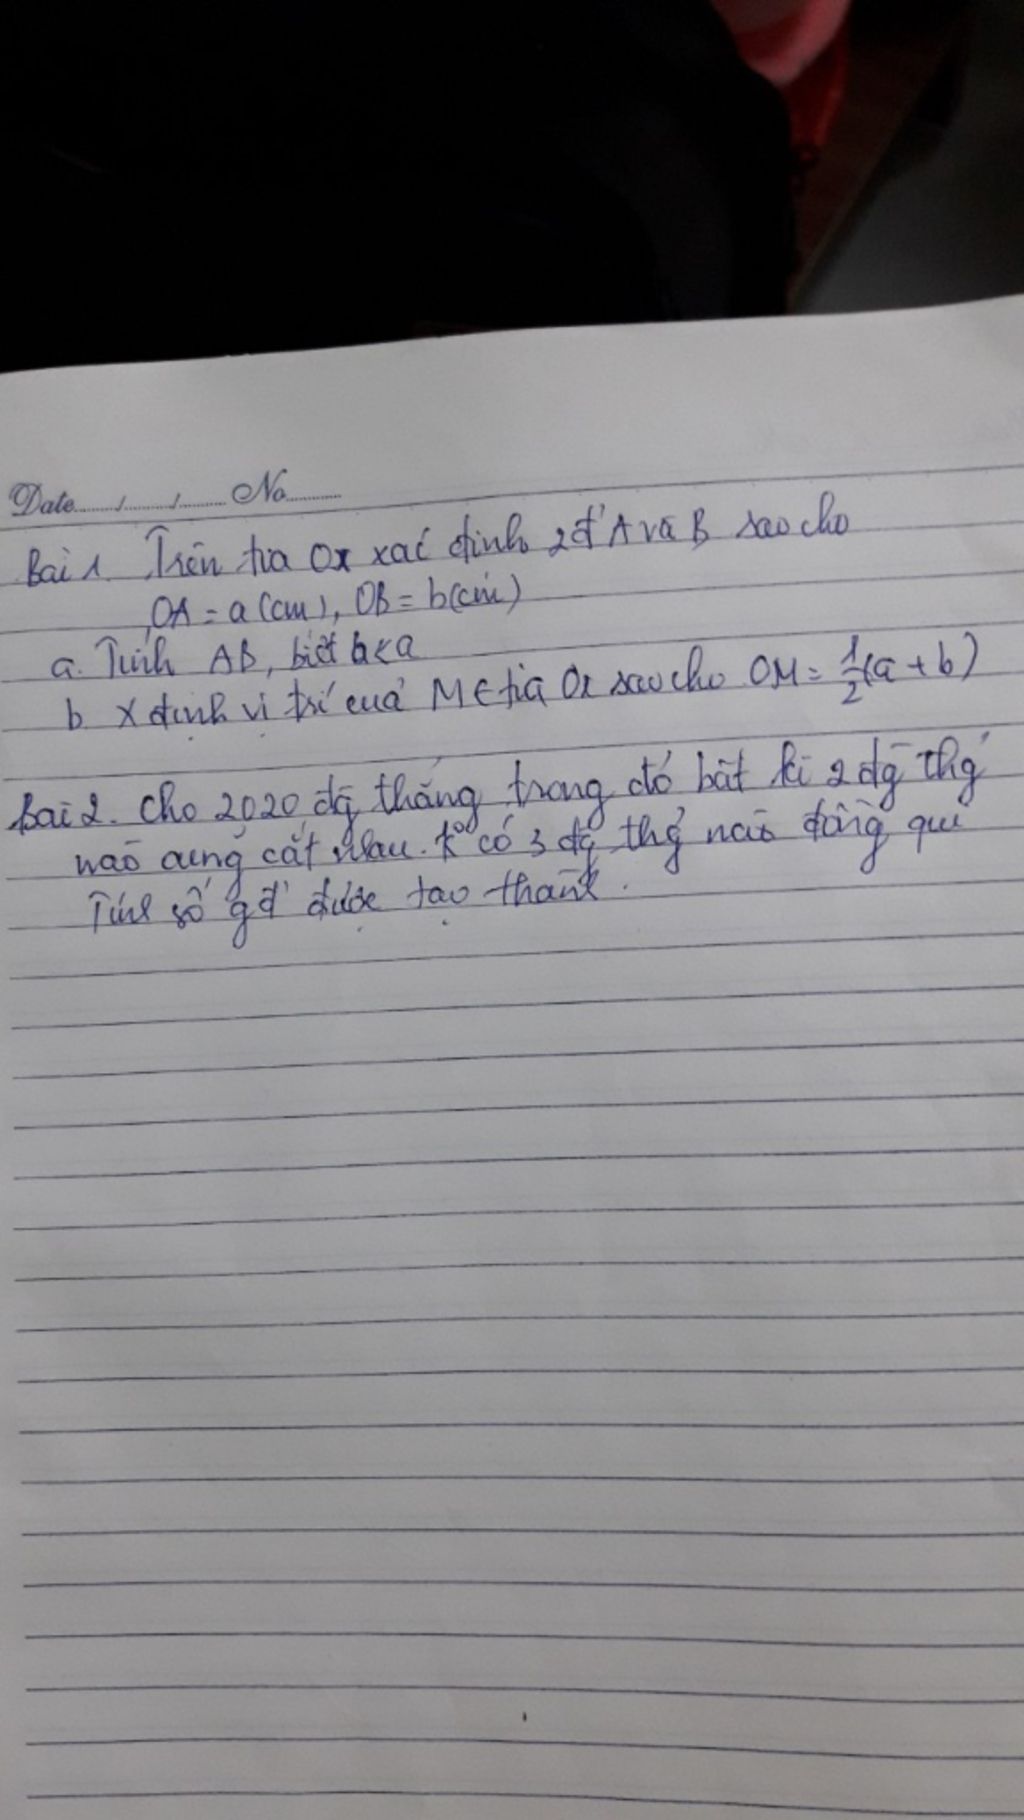 Date......./......./....... No..........
Bài 1. Trên tia Ox xác định 2 đ' A và B sao cho
OA = a (cm), OB = b (cm)
a. Tính AB, biết b < a
b. X định vị trí của M ∈ tia Ox sao cho OM = 1/2 (a + b)
Bài 2. Cho 2020 đg thẳng trong đó bất kì 2 đg thg
nào cũng cắt nhau. K° có 3 đg thg nào đồng qui
Tính số gđ' được tạo thành.